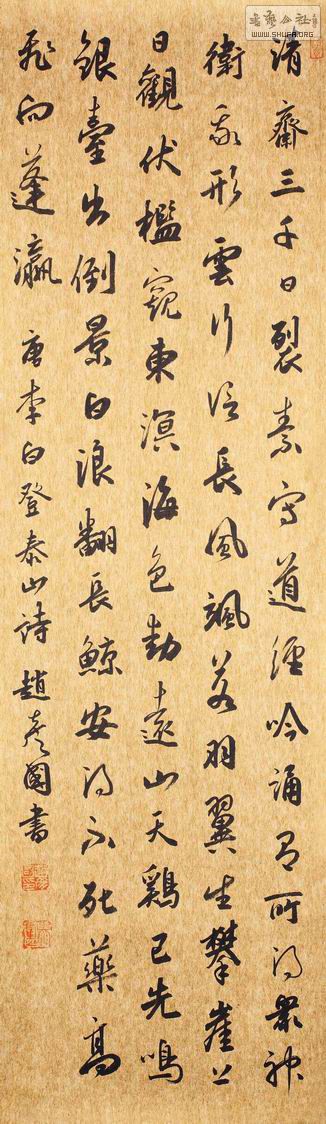 清齋三千日裂素寫道經吟誦有所得眾神
衛我形雲行信長風颯若羽翼生攀崖上
日觀伏檻窺東溟海色動遠山天鷄已先鳴
銀臺出倒景白浪翻長鯨安得不死藥高
飛向蓬瀛 唐李白登泰山詩 趙彥國書
書藝公社
WWW.SHUFA.ORG